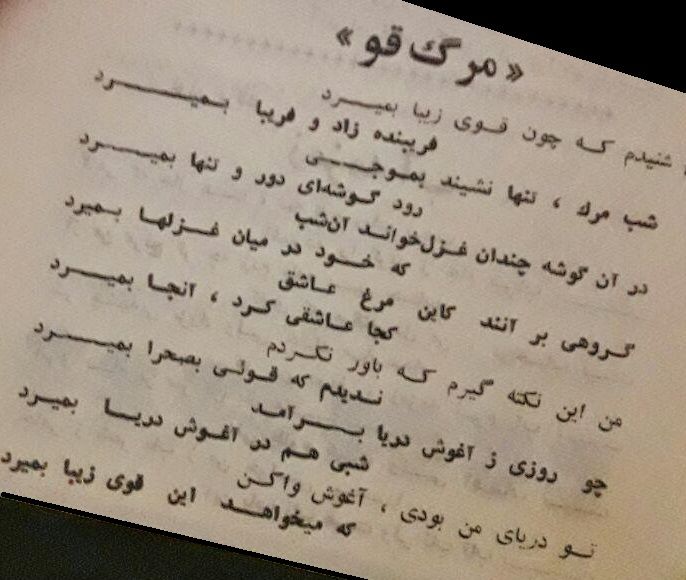 «مرگ قو»
شنیدم که چون قوی زیبا بمیرد
فریبنده زاد و فریبا بمیرد
شب مرگ ، تنها نشیند بموجی
رود گوشه‌ای دور و تنها بمیرد
در آن گوشه چندان غزل‌خواند آن‌شب
که خود در میان غزلها بمیرد
گروهی بر آنند کاین مرغ عاشق
کجا عاشقی کرد ، آنجا بمیرد
من این نکته گیرم که باور نکردم
ندیدم که قوئی بصحرا بمیرد
چو روزی ز آغوش دریا برآمد
شبی هم در آغوش دریا بمیرد
تو دریای من بودی ، آغوش واکن
که میخواهد این قوی زیبا بمیرد